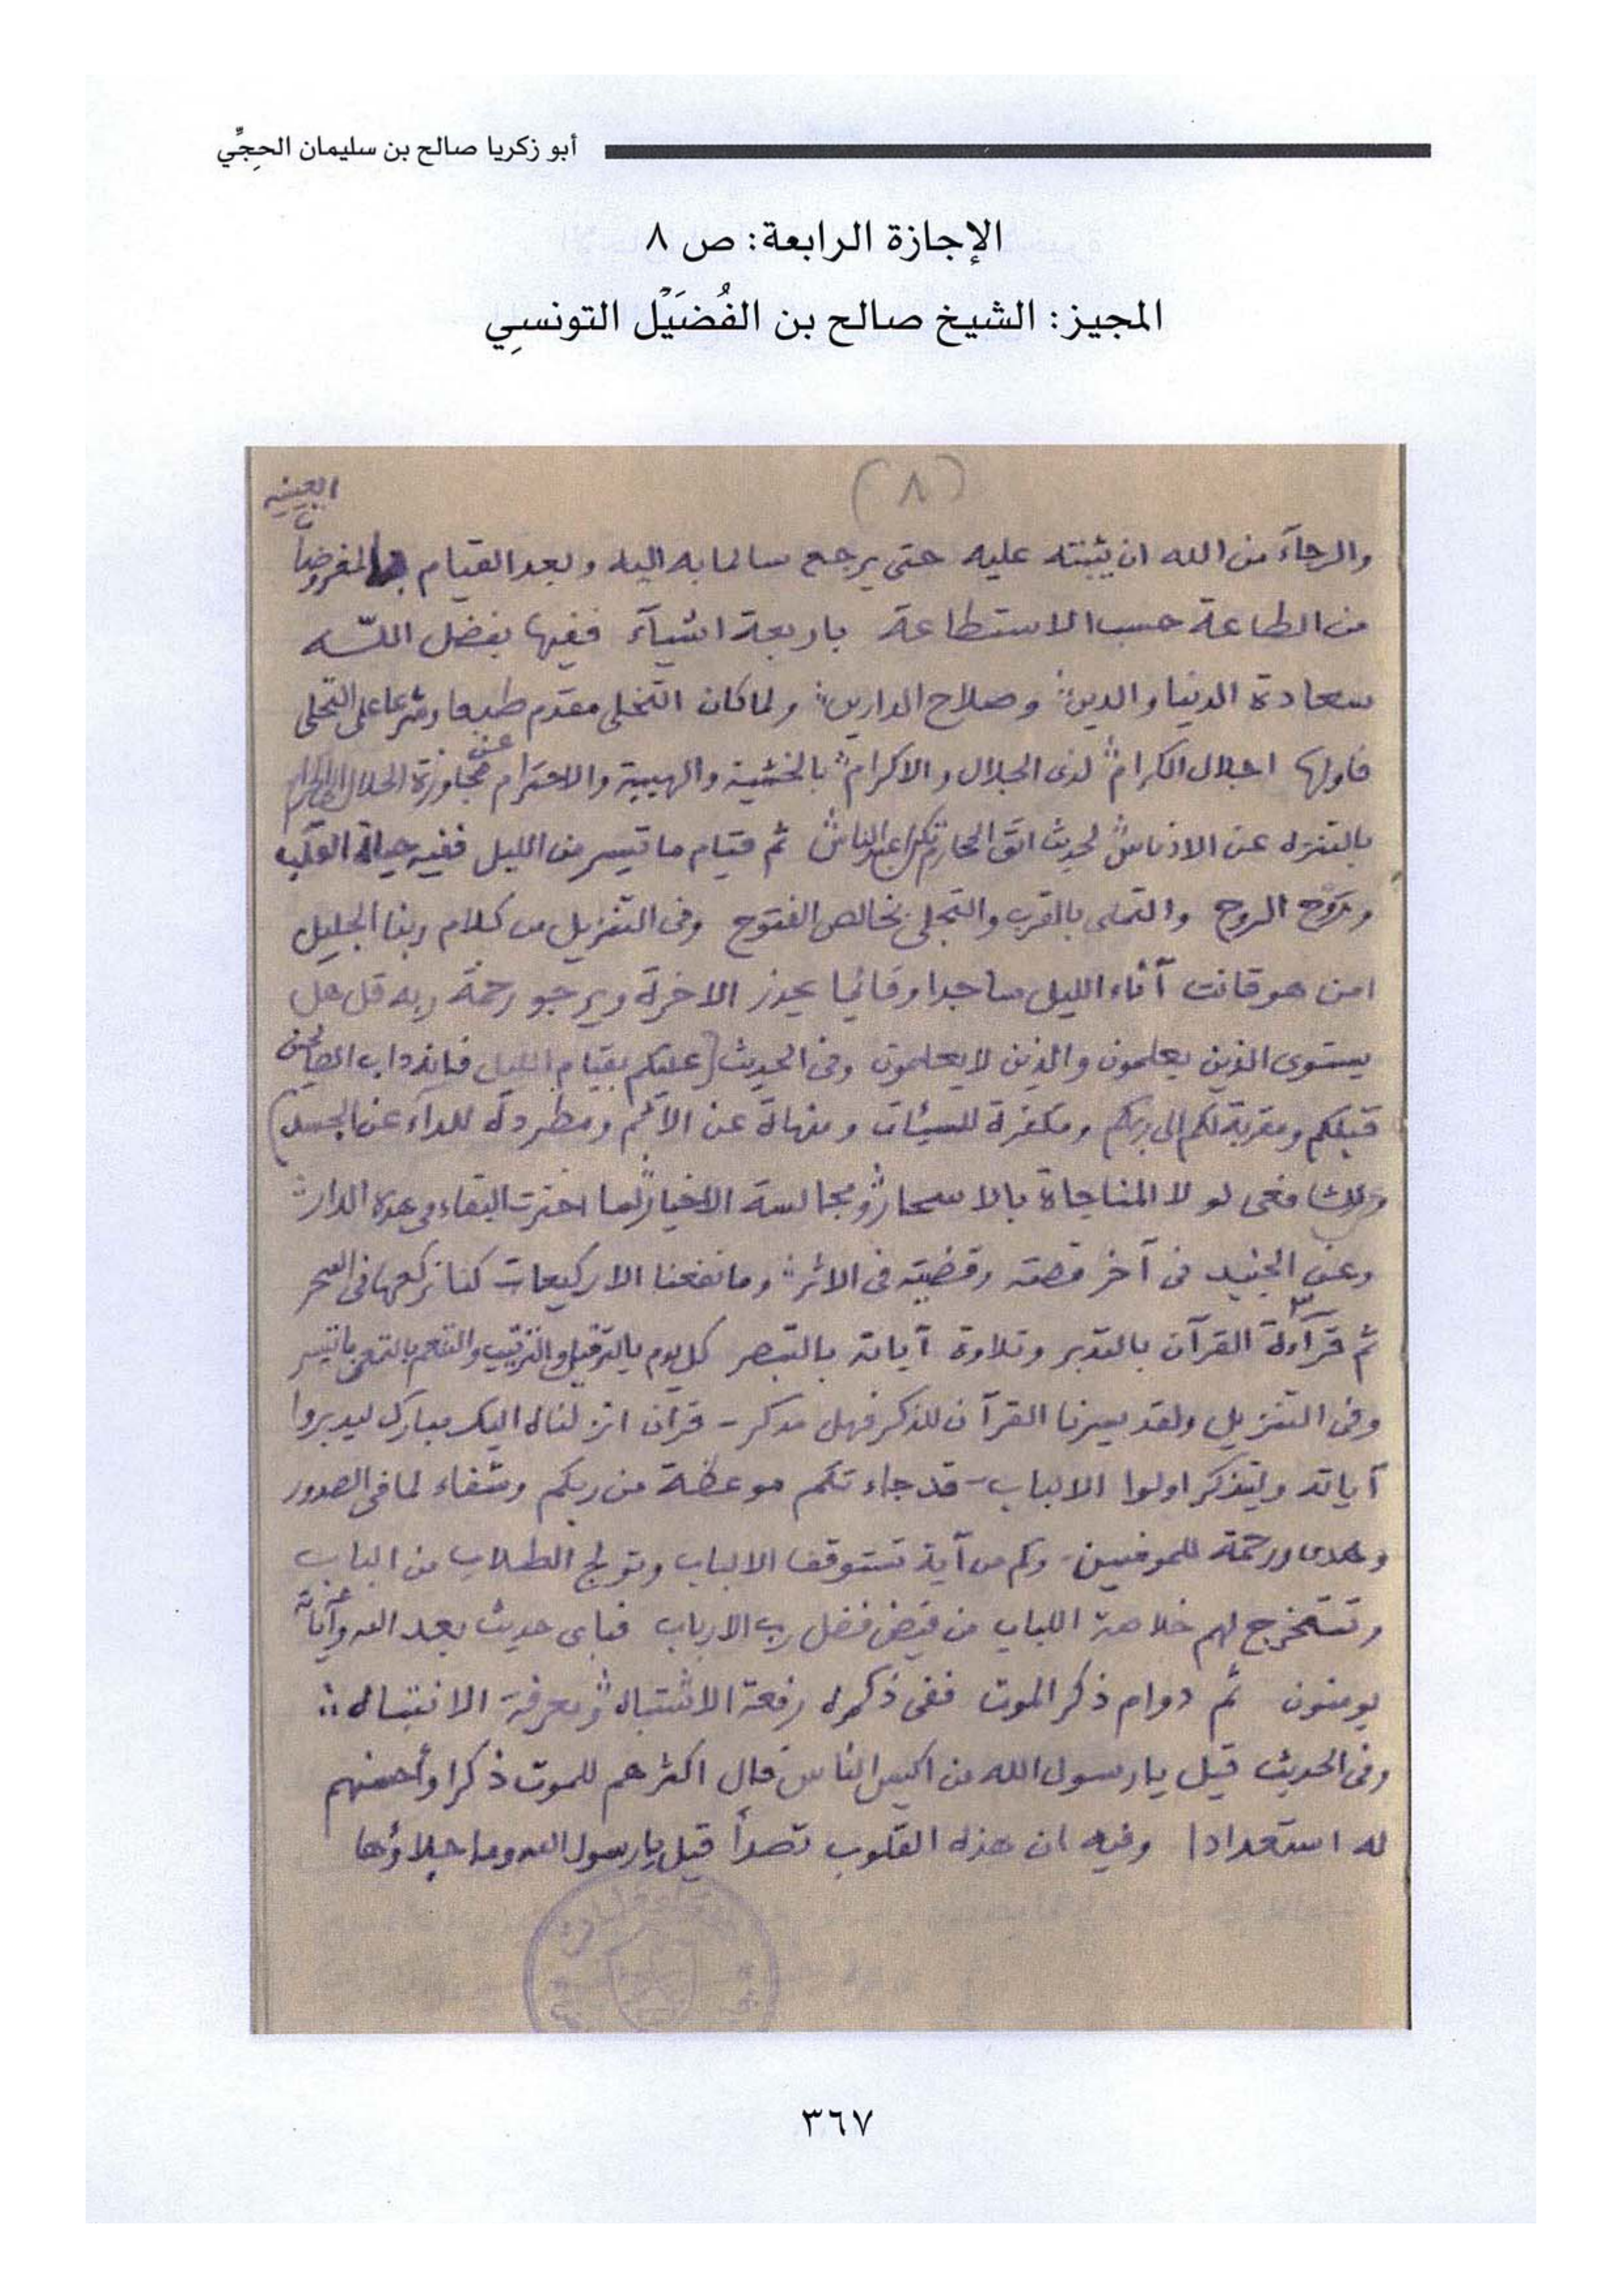 أبو زكريا صالح بن سليمان الحجِّي
الإجازة الرابعة: ص ٨
المجيز: الشيخ صالح بن الفُضَيْل التونسِي
(٨)
العينيه
والرجآء من الله ان يثبته عليه حتى يرجع سالما به اليه وبعد القيام بالمفروضات
من الطاعة حسب الاستطاعة باربعة اشيآء ففيها بفضل اللّه
سعادة الدنيا والدين وصلاح الدارين ولما كان التخلى مقدم طبعا وشرعا على التحلى
فاولها اجلال الكرام لذى الجلال والاكرام بالخشية والهيبة والاحترام عن مجاوزة الحلال الى الحرام
بالتنزه عن الادناس لحديث اتق المحارم تكن اعبد الناس ثم قيام ما تيسر من الليل ففيه حياة القلب
وروح الروح والتملى بالقرب والتجلى بخالص الفتوح وفى التنزيل من كلام ربنا الجليل
امن هو قانت آناء الليل ساجدا وقائما يحذر الاخرة ويرجو رحمة ربه قل هل
يستوى الذين يعلمون والذين لا يعلمون وفى الحديث (عليكم بقيام الليل فانه داب الصالحين
قبلكم ومقربة لكم الى ربكم ومكفرة للسيئات ومنهاة عن الآثم ومطردة للدآء عن الجسد)
وللشافعى لو لا المناجاة بالاسحار ومجالسة الاخيار لما اخترت البقاء فى هذه الدار
وعن الجنيد فى آخر قصته وقضيته فى الاثر وما نفعنا الا ركيعات كنا نركعها فى السحر
ثم قرآءة القرآن بالتدبر وتلاوة آياته بالتبصر كل يوم بالترتيل والترتيب والتنعم بالتمعن ما تيسر
وفى التنزيل ولقد يسرنا القرآن للذكر فهل مدكر - قرآن انزلناه اليك مبارك ليدبروا
آياته وليتذكر اولوا الالباب - قد جاءتكم موعظة من ربكم وشفاء لما فى الصدور
وهدى ورحمة للمومنين - وكم من آية تستوقف الالباب وتولج الطلاب من الباب
وتستخرج لهم خلاصة اللباب من فيض فضل رب الارباب فباى حديث بعد الله وآياته
يومنون ثم دوام ذكر الموت ففى ذكره رفعة الاشتباه ومعرفة الانتباه
وفى الحديث قيل يا رسول الله من اكيس الناس قال اكثرهم للموت ذكرا وأحسنهم
له استعدادا وفيه ان هذه القلوب تصدأ قيل يا رسول الله وما جلاؤها
٣٦٧